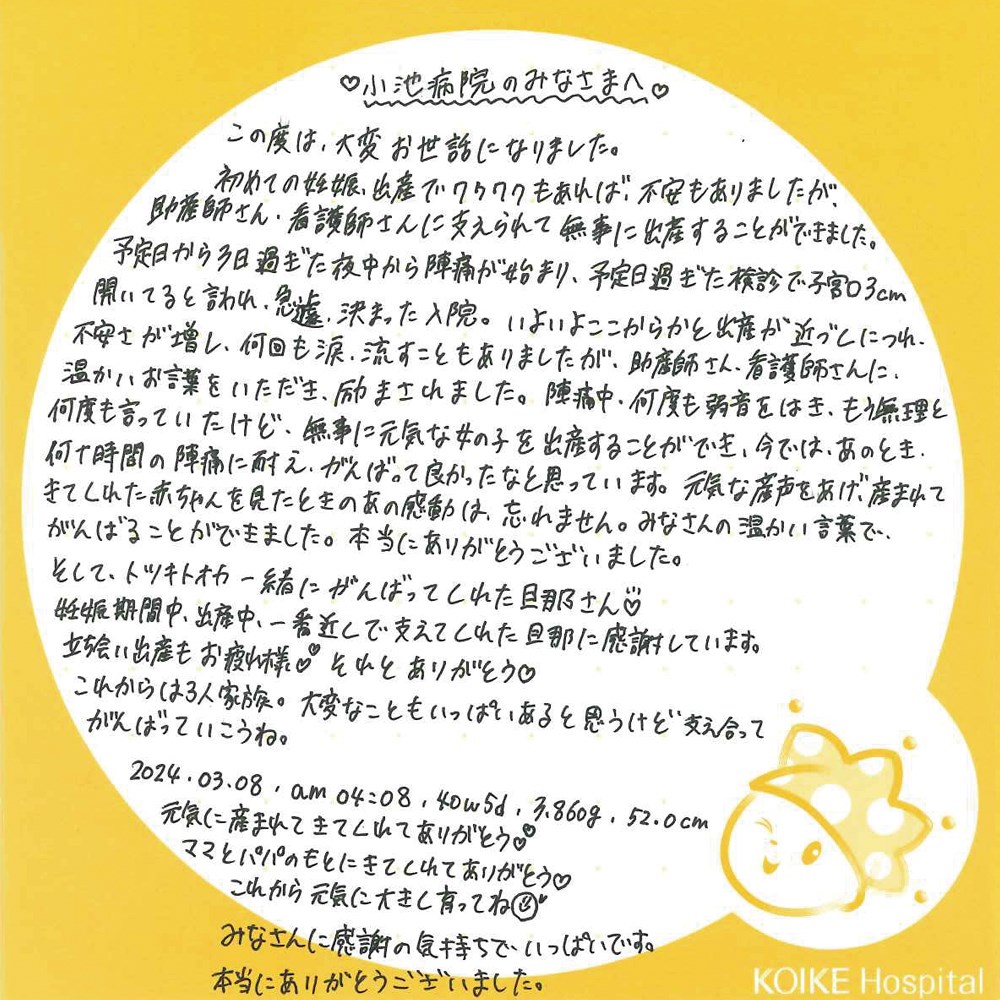 ♡小池病院のみなさまへ♡
この度は、大変お世話になりました。
初めての妊娠、出産でワクワクもあれば、不安もありましたが、
助産師さん、看護師さんに支えられて無事に出産することができました。
予定日から3日過ぎた夜中から陣痛が始まり、予定日過ぎた検診で子宮口3cm
開いてると言われ、急遽、決まった入院。いよいよここからかと出産が近づくにつれ、
不安さが増し、何回も涙、流すこともありましたが、助産師さん、看護師さんに、
温かいお言葉をいただき、励まされました。陣痛中、何度も弱音をはき、もう無理と
何度も言っていたけど、無事に元気な女の子を出産することができ、今では、あのとき、
何十時間の陣痛に耐え、がんばって良かったなと思っています。元気な産声をあげ、産まれて
きてくれた赤ちゃんを見たときのあの感動は、忘れません。みなさんの温かい言葉で、
がんばることができました。本当にありがとうございました。
そして、トツキトオカ一緒にがんばってくれた旦那さん♡
妊娠期間中、出産中、一番近くで支えてくれた旦那に感謝しています。
立ち会い出産もお疲れ様♡ それとありがとう♡
これからは3人家族。大変なこともいっぱいあると思うけど支え合って
がんばっていこうね。
2024.03.08, am 04:08, 40w5d, 3.860g, 52.0cm
元気に産まれてきてくれてありがとう♡
ママとパパのもとにきてくれてありがとう♡
これから元気に大きく育ってね
みなさんに感謝の気持ちで、いっぱいです。
本当にありがとうございました。
KOIKE Hospital